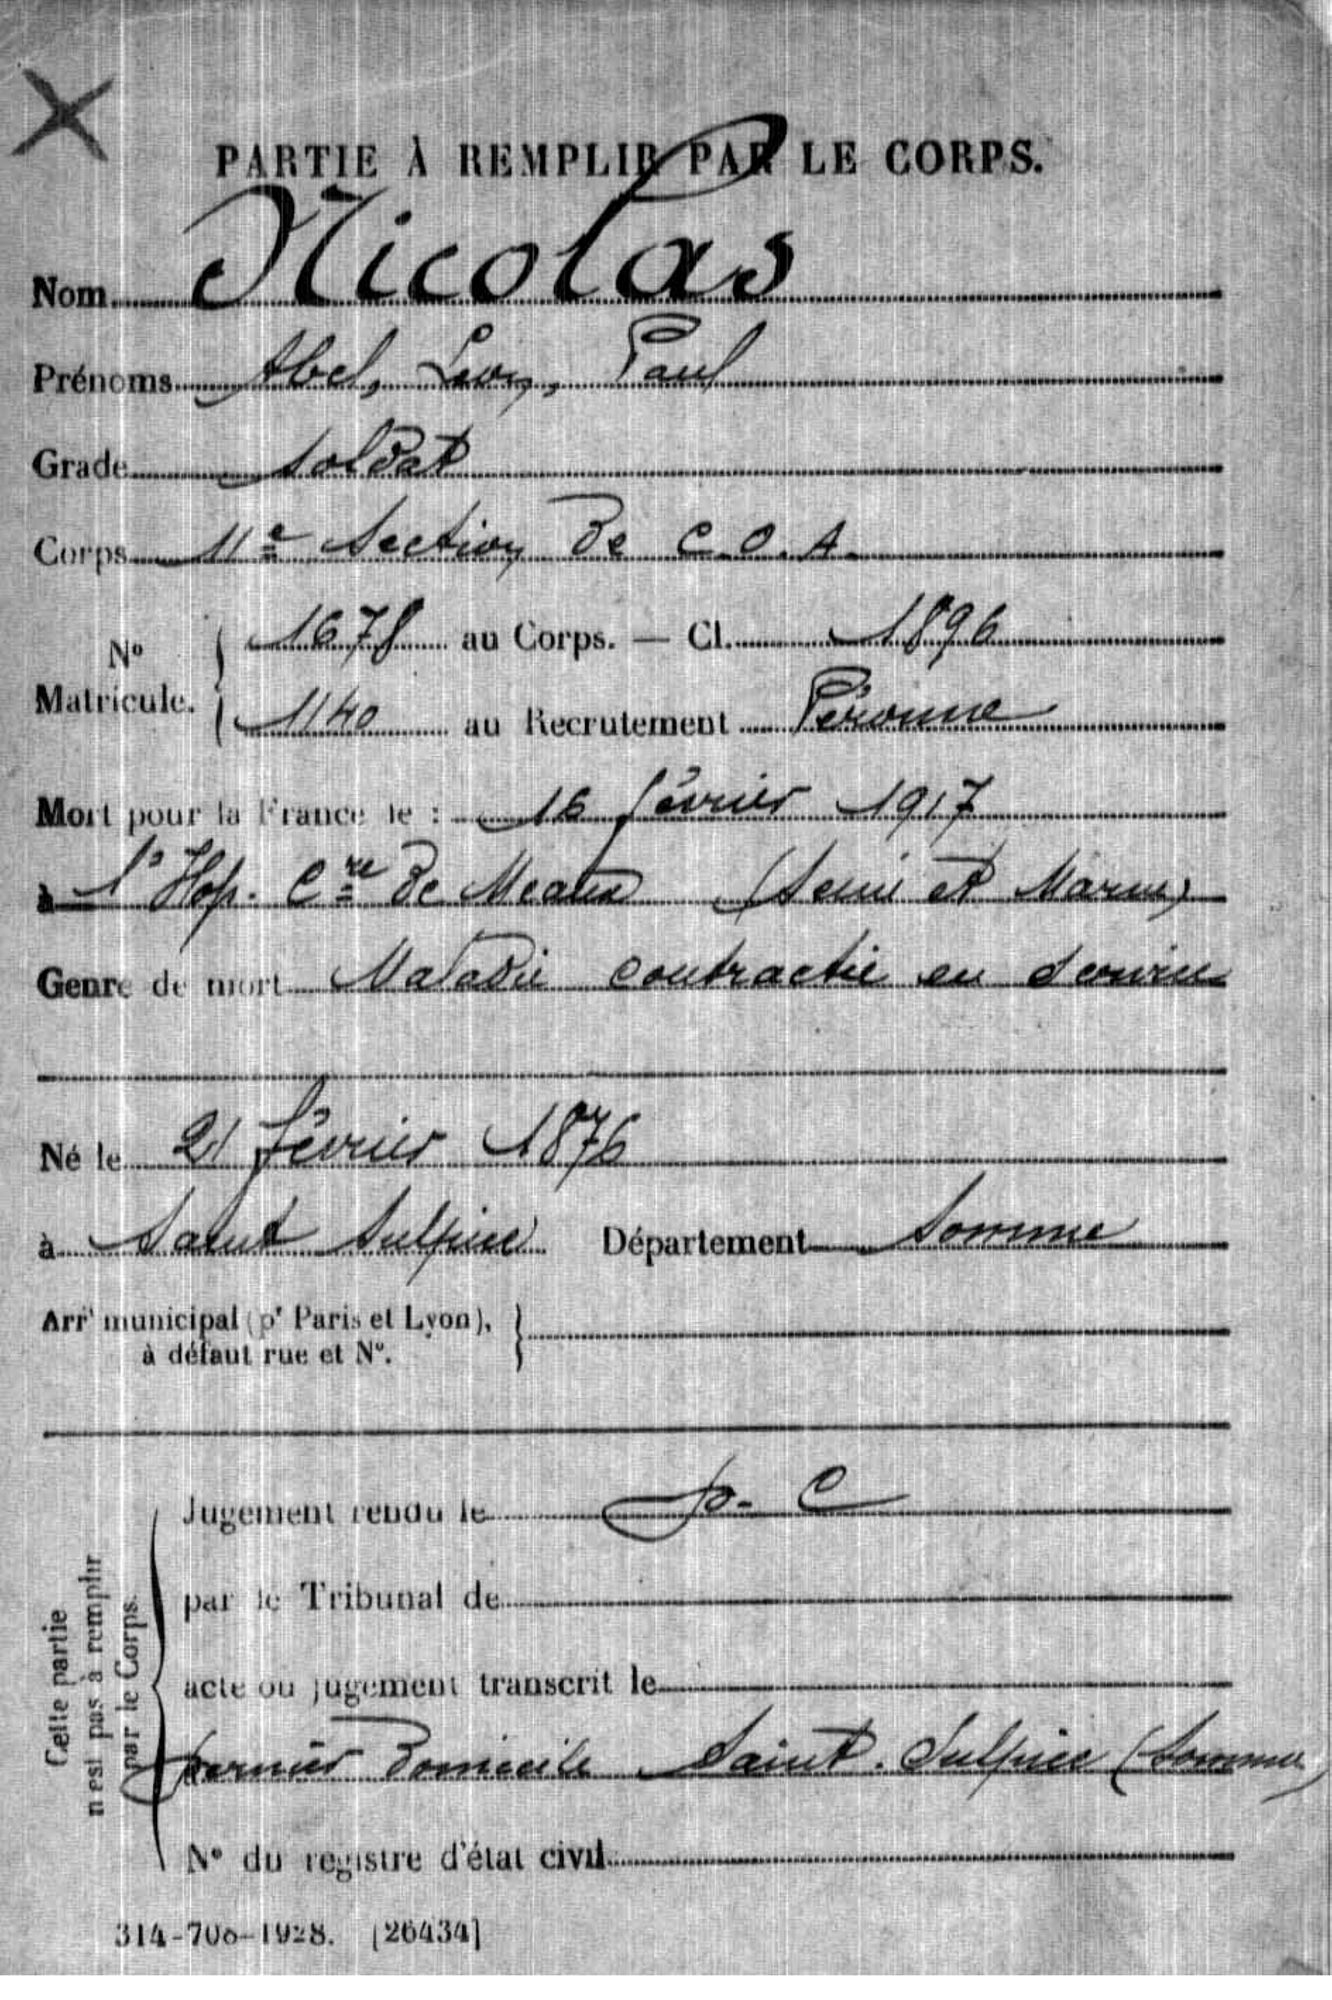 PARTIE À REMPLIR PAR LE CORPS.
Nom Nicolas
Prénoms Abel, Léon, Paul
Grade soldat
Corps 11e Section de C.O.A.
N° Matricule. 1678 au Corps. — Cl. 1896
1140 au Recrutement Péronne
Mort pour la France le : 16 février 1917
à l'Hop. Cre de Meaux (Seine et Marne)
Genre de mort Maladie contractée en service
Né le 21 février 1876
à Saint Sulpice Département Somme
Arrt municipal (pr Paris et Lyon),
à défaut rue et N°.
Cette partie
n'est pas à remplir
par le Corps.
Jugement rendu le p. C
par le Tribunal de
acte ou jugement transcrit le
dernier domicile Saint-Sulpice (Somme)
N° du registre d'état civil
314-708-1928. [26434]